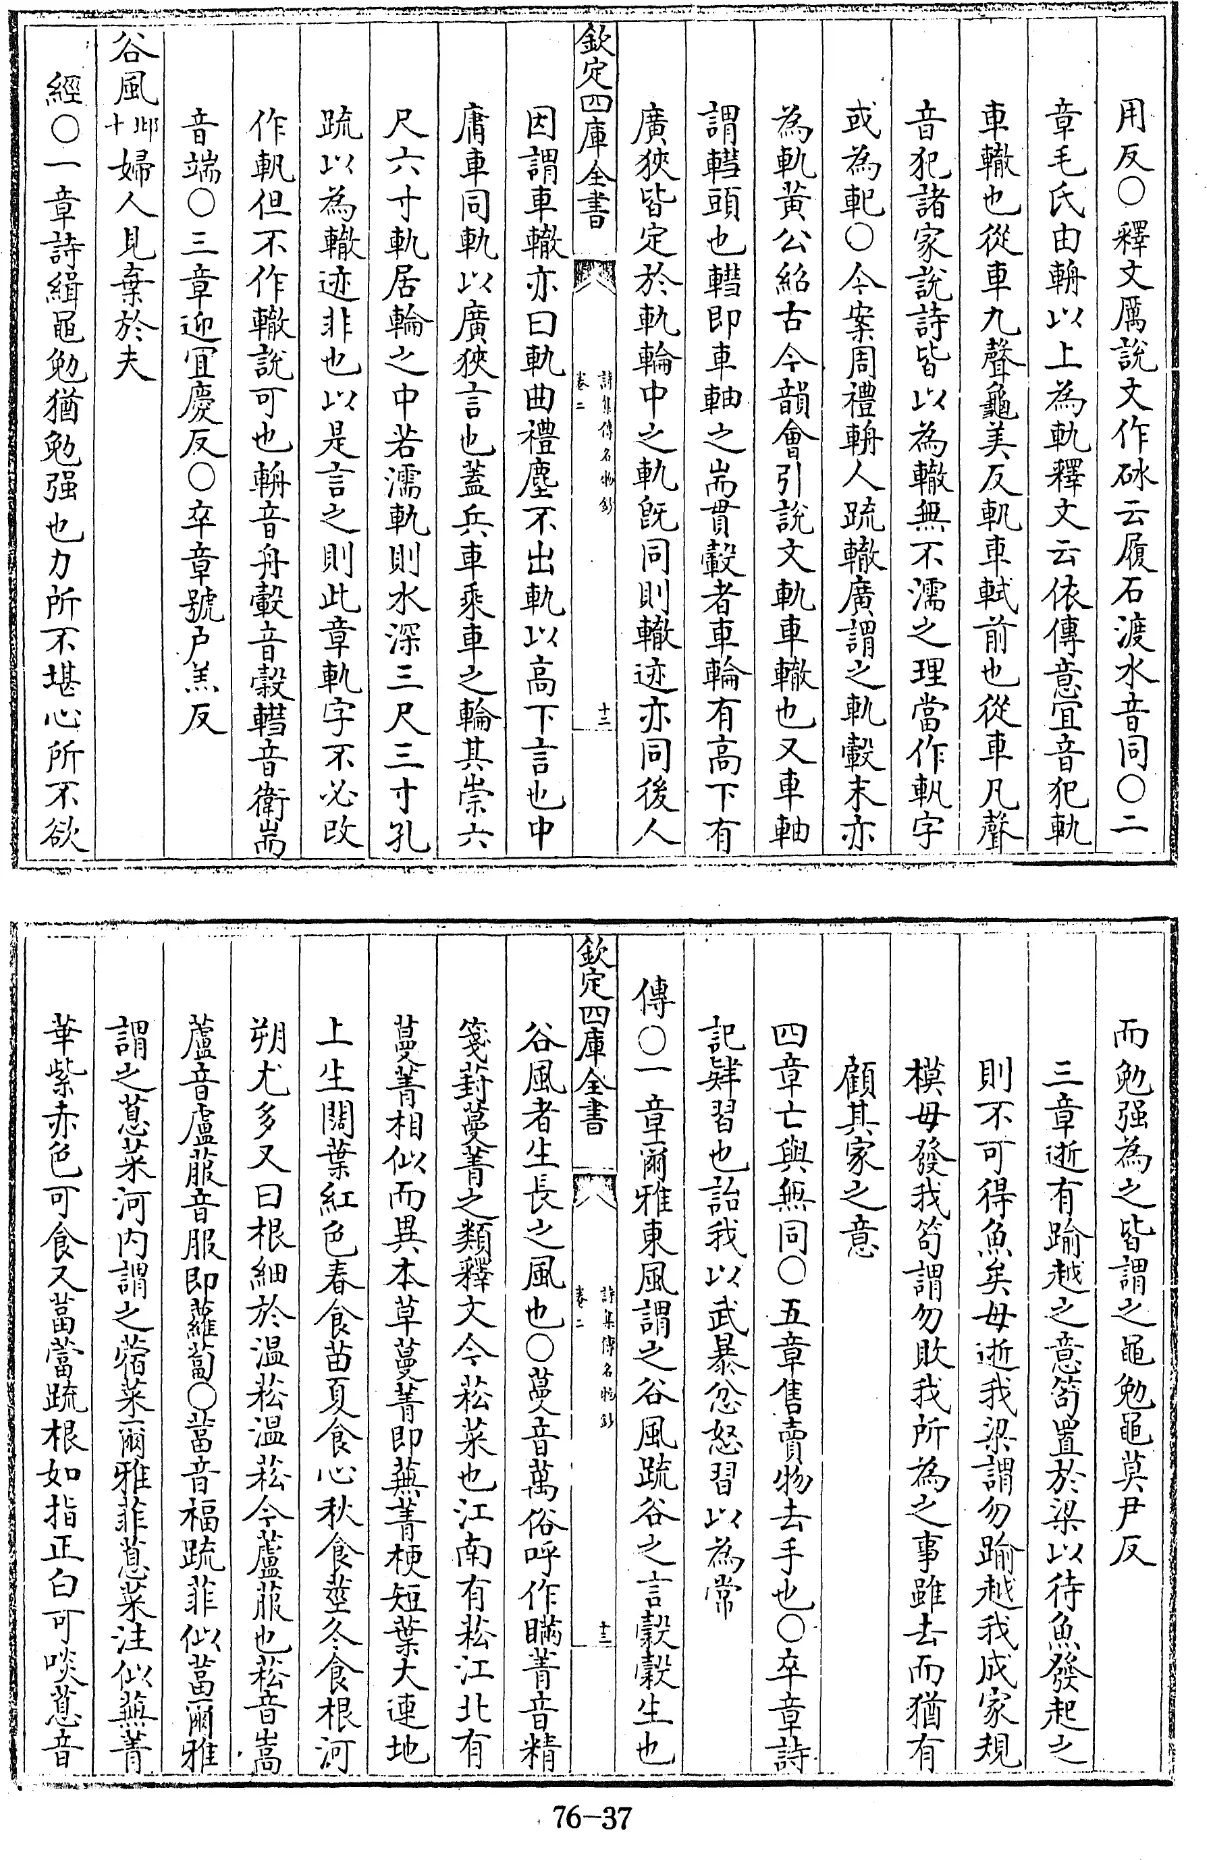 用反○釋文厲說文作砅云履石渡水音同○二
章毛氏由輈以上為軌釋文云依傳意宜音犯軌
車轍也從車九聲龜美反軓車軾前也從車凡聲
音犯諸家說詩皆以為轍無不濡之理當作軓字
或為軋○今案周禮輈人疏轍廣謂之軌轂末亦
為軌黄公紹古今韻會引說文軌車轍也又車軸
謂轊頭也轊即車軸之耑貫轂者車輪有高下有
廣狹皆定於軌輪中之軌旣同則轍迹亦同後人
欽定四庫全書
詩集傳名物鈔
卷二
十二
因謂車轍亦曰軌曲禮塵不出軌以高下言也中
庸車同軌以廣狹言也蓋兵車乘車之輪其崇六
尺六寸軌居輪之中若濡軌則水深三尺三寸孔
疏以為轍迹非也以是言之則此章軌字不必改
作軓但不作轍說可也輈音舟轂音穀轊音衛耑
音端○三章迎宜慶反○卒章號户羔反
谷風邶十婦人見棄於夫
經○一章詩緝黽勉猶勉强也力所不堪心所不欲
而勉强為之皆謂之黽勉黽莫尹反
三章逝有踰越之意笱置於梁以待魚發起之
則不可得魚矣毋逝我梁謂勿踰越我成家規
模毋發我笱謂勿敗我所為之事雖去而猶有
顧其家之意
四章亡與無同○五章售賣物去手也○卒章詩
記肄習也詒我以武暴忿怒習以為常
傳○一章爾雅東風謂之谷風疏谷之言穀穀生也
欽定四庫全書
詩集傳名物鈔
卷二
十三
谷風者生長之風也○蔓音萬俗呼作瞞菁音精
箋葑蔓菁之類釋文今菘菜也江南有菘江北有
蔓菁相似而異本草蔓菁即蕪菁梗短葉大連地
上生闊葉紅色春食苗夏食心秋食莖冬食根河
朔尤多又曰根細於温菘温菘今蘆菔也菘音嵩
蘆音盧菔音服即蘿蔔○葍音福疏菲似葍爾雅
謂之蒠菜河内謂之蓿菜爾雅菲蒠菜注似蕪菁
華紫赤色可食又葍䔰疏根如指正白可啖蒠音
76–37